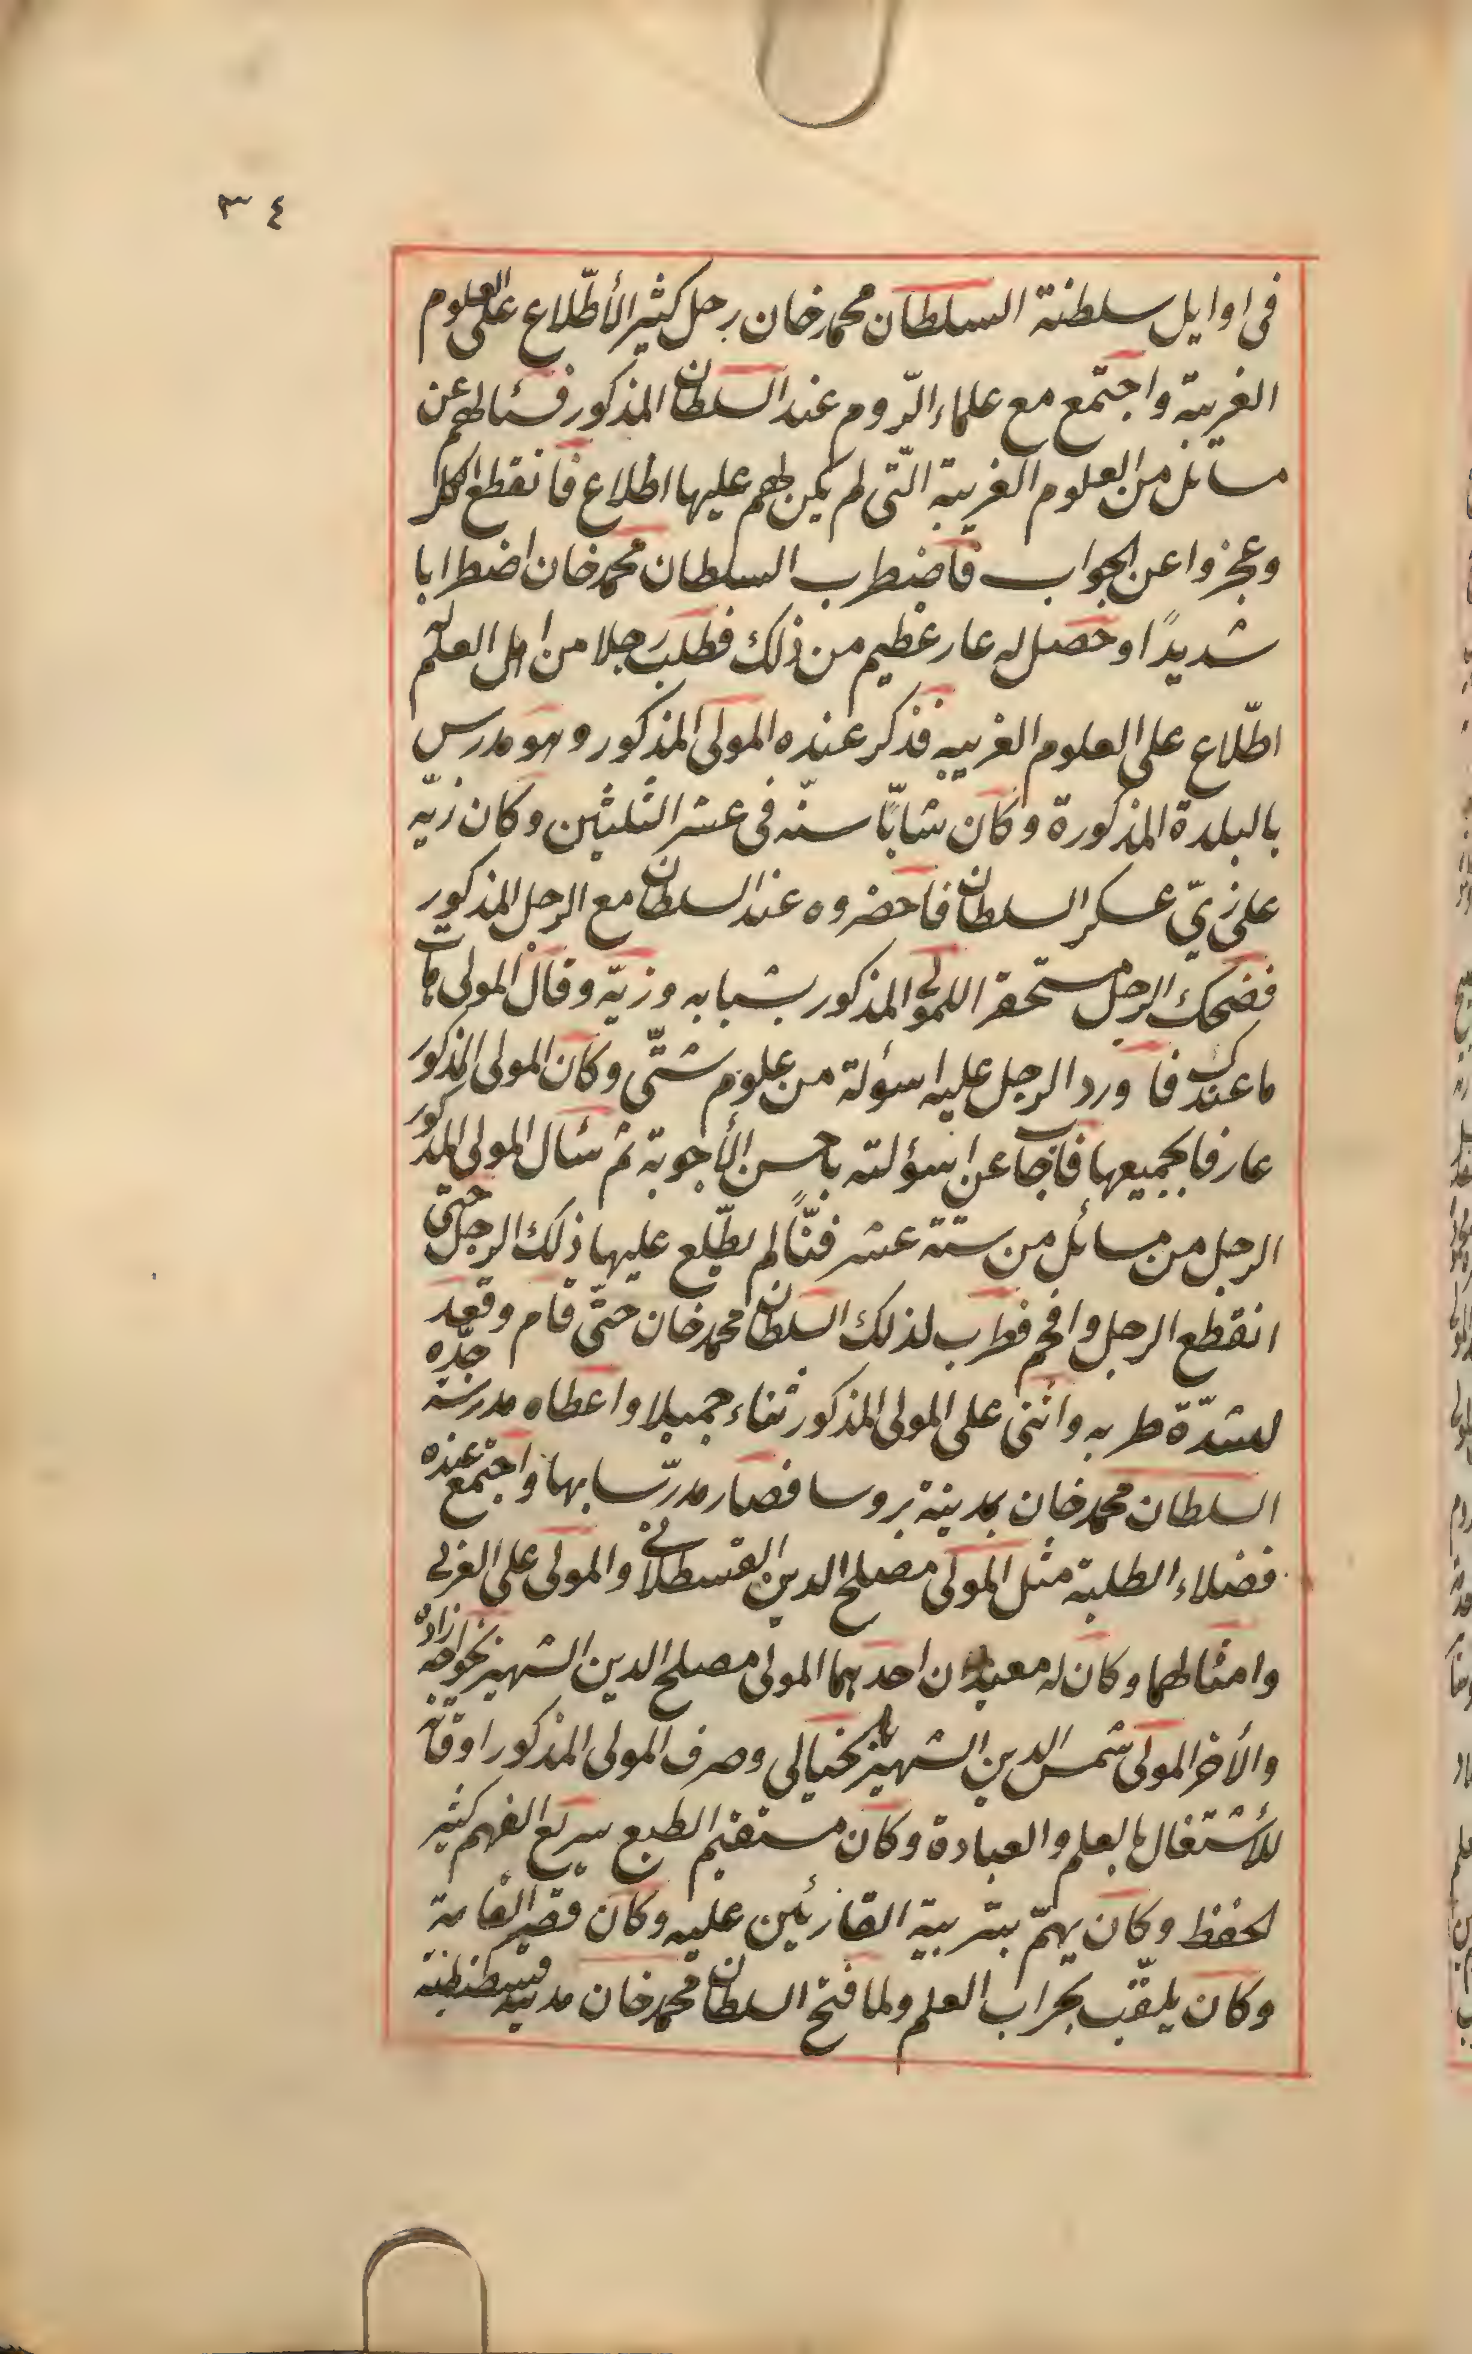 ٣٤
فى اوايل سلطنة السلطان محمد خان رجل كثير الأطّلاع على العلوم
الغريبة واجتمع مع علماء الرّوم عند السلطان المذكور فسئالهم عن
مسائل من العلوم الغريبة الّتى لم يكن لهم عليها اطلاع فانقطع الكل
وعجزوا عن الجواب فاضطرب السلطان محمد خان اضطرابا
شديدًا وحصل له عار عظيم من ذلك فطلب رجلا من اهل العلم له
اطّلاع على العلوم الغريبه فذكر عنده المولى المذكور وهو مدرس
بالبلدة المذكورة وكان شابّا سنّه فى عشر الثلثين وكان زيّه
على زىّ عسكر السلطان فاحضروه عند السلطان مع الرجل المذكور
فضحك الرجل مستحقرا للمولى المذكور بشبابه وزيّه وقال المولى هات
ما عندك فاورد الرجل عليه اسؤلة من علوم شتّى وكان المولى المذكور
عارفا بجميعها فاجاب عن اسؤلته باحسن الأجوبة ثم سئال المولى المذكور
الرجل من مسائل من ستة عشر فنّاً لم يطّلع عليها ذلك الرجل حتى
انقطع الرجل وافحم فطرب لذلك السلطان محمد خان حتّى قام وقعد
لشدّة طربه واثنى على المولى المذكور ثناء جميلا واعطاه مدرسة جدّه
السلطان محمد خان بمدينة بروسا فصار مدرّسا بها واجتمع عنده
فضلاء الطلبة مثل المولى مصلح الدين القسطلانى والمولى على العربى
وامثالهما وكان له معيدان احدهما المولى مصلح الدين الشهير بخواجه زاده
والأخر المولى شمس الدين الشهير بالخيالى وصرف المولى المذكور اوقاته
للأشتغال بالعلم والعبادة وكان مستقيم الطبع سريع الفهم كثير
لحفظ وكان يهتمّ بتربية القارئين عليه وكان قصير القامة
وكان يلقّب بجراب العلم ولما فتح السلطان محمد خان مدينه قسطنطينه